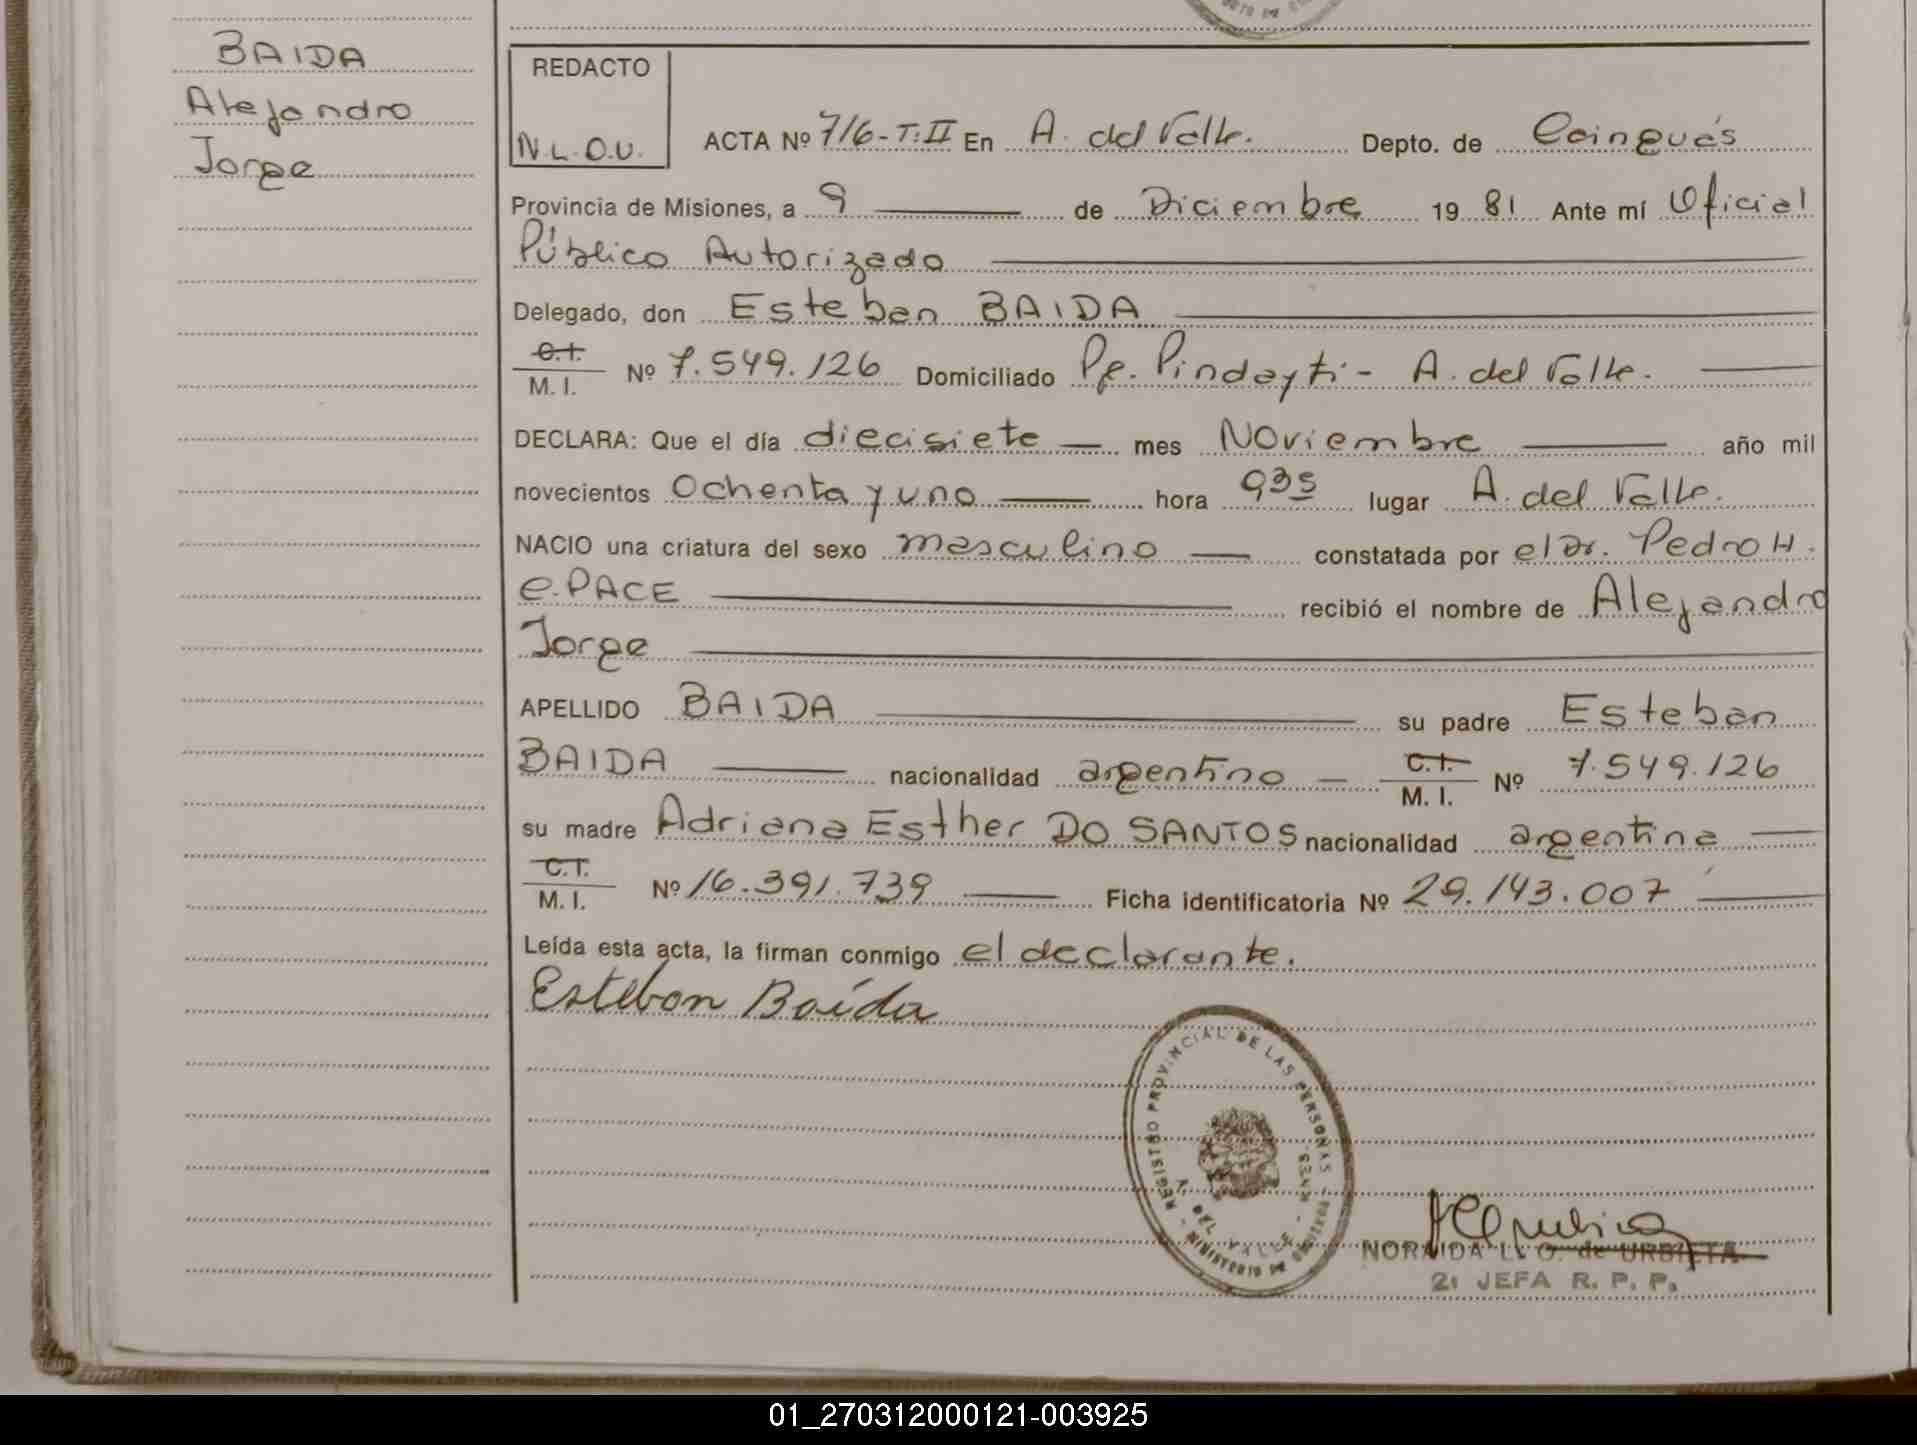 BAIDA
Alejandro
Jorge
REDACTO
N.L.O.U.
ACTA Nº 716-T:II En A. del Valle. Depto. de Cainguás
Provincia de Misiones, a 9 de Diciembre 19 81 Ante mí Oficial
Público Autorizado
Delegado, don Esteban BAIDA
C.I.
M. I. Nº 7.549.126 Domiciliado Pje. Pindayti - A. del Valle.
DECLARA: Que el día diecisiete mes Noviembre año mil
novecientos Ochenta y uno hora 935 lugar A. del Valle.
NACIO una criatura del sexo masculino constatada por el Dr. Pedro H.
C. PACE recibió el nombre de Alejandro
Jorge
APELLIDO BAIDA su padre Esteban
BAIDA nacionalidad argentino C.I. M. I. Nº 7.549.126
su madre Adriana Esther DO SANTOS nacionalidad argentina
C.I.
M. I. Nº 16.391.739 Ficha identificatoria Nº 29.143.007
Leída esta acta, la firman conmigo el declarante.
Esteban Baida
REGISTRO PROVINCIAL DE LAS PERSONAS
A. DEL VALLE
MINISTERIO DE GOBIERNO
NORAIDA L. O. de URBIETA
2: JEFA R. P. P.
01_270312000121-003925